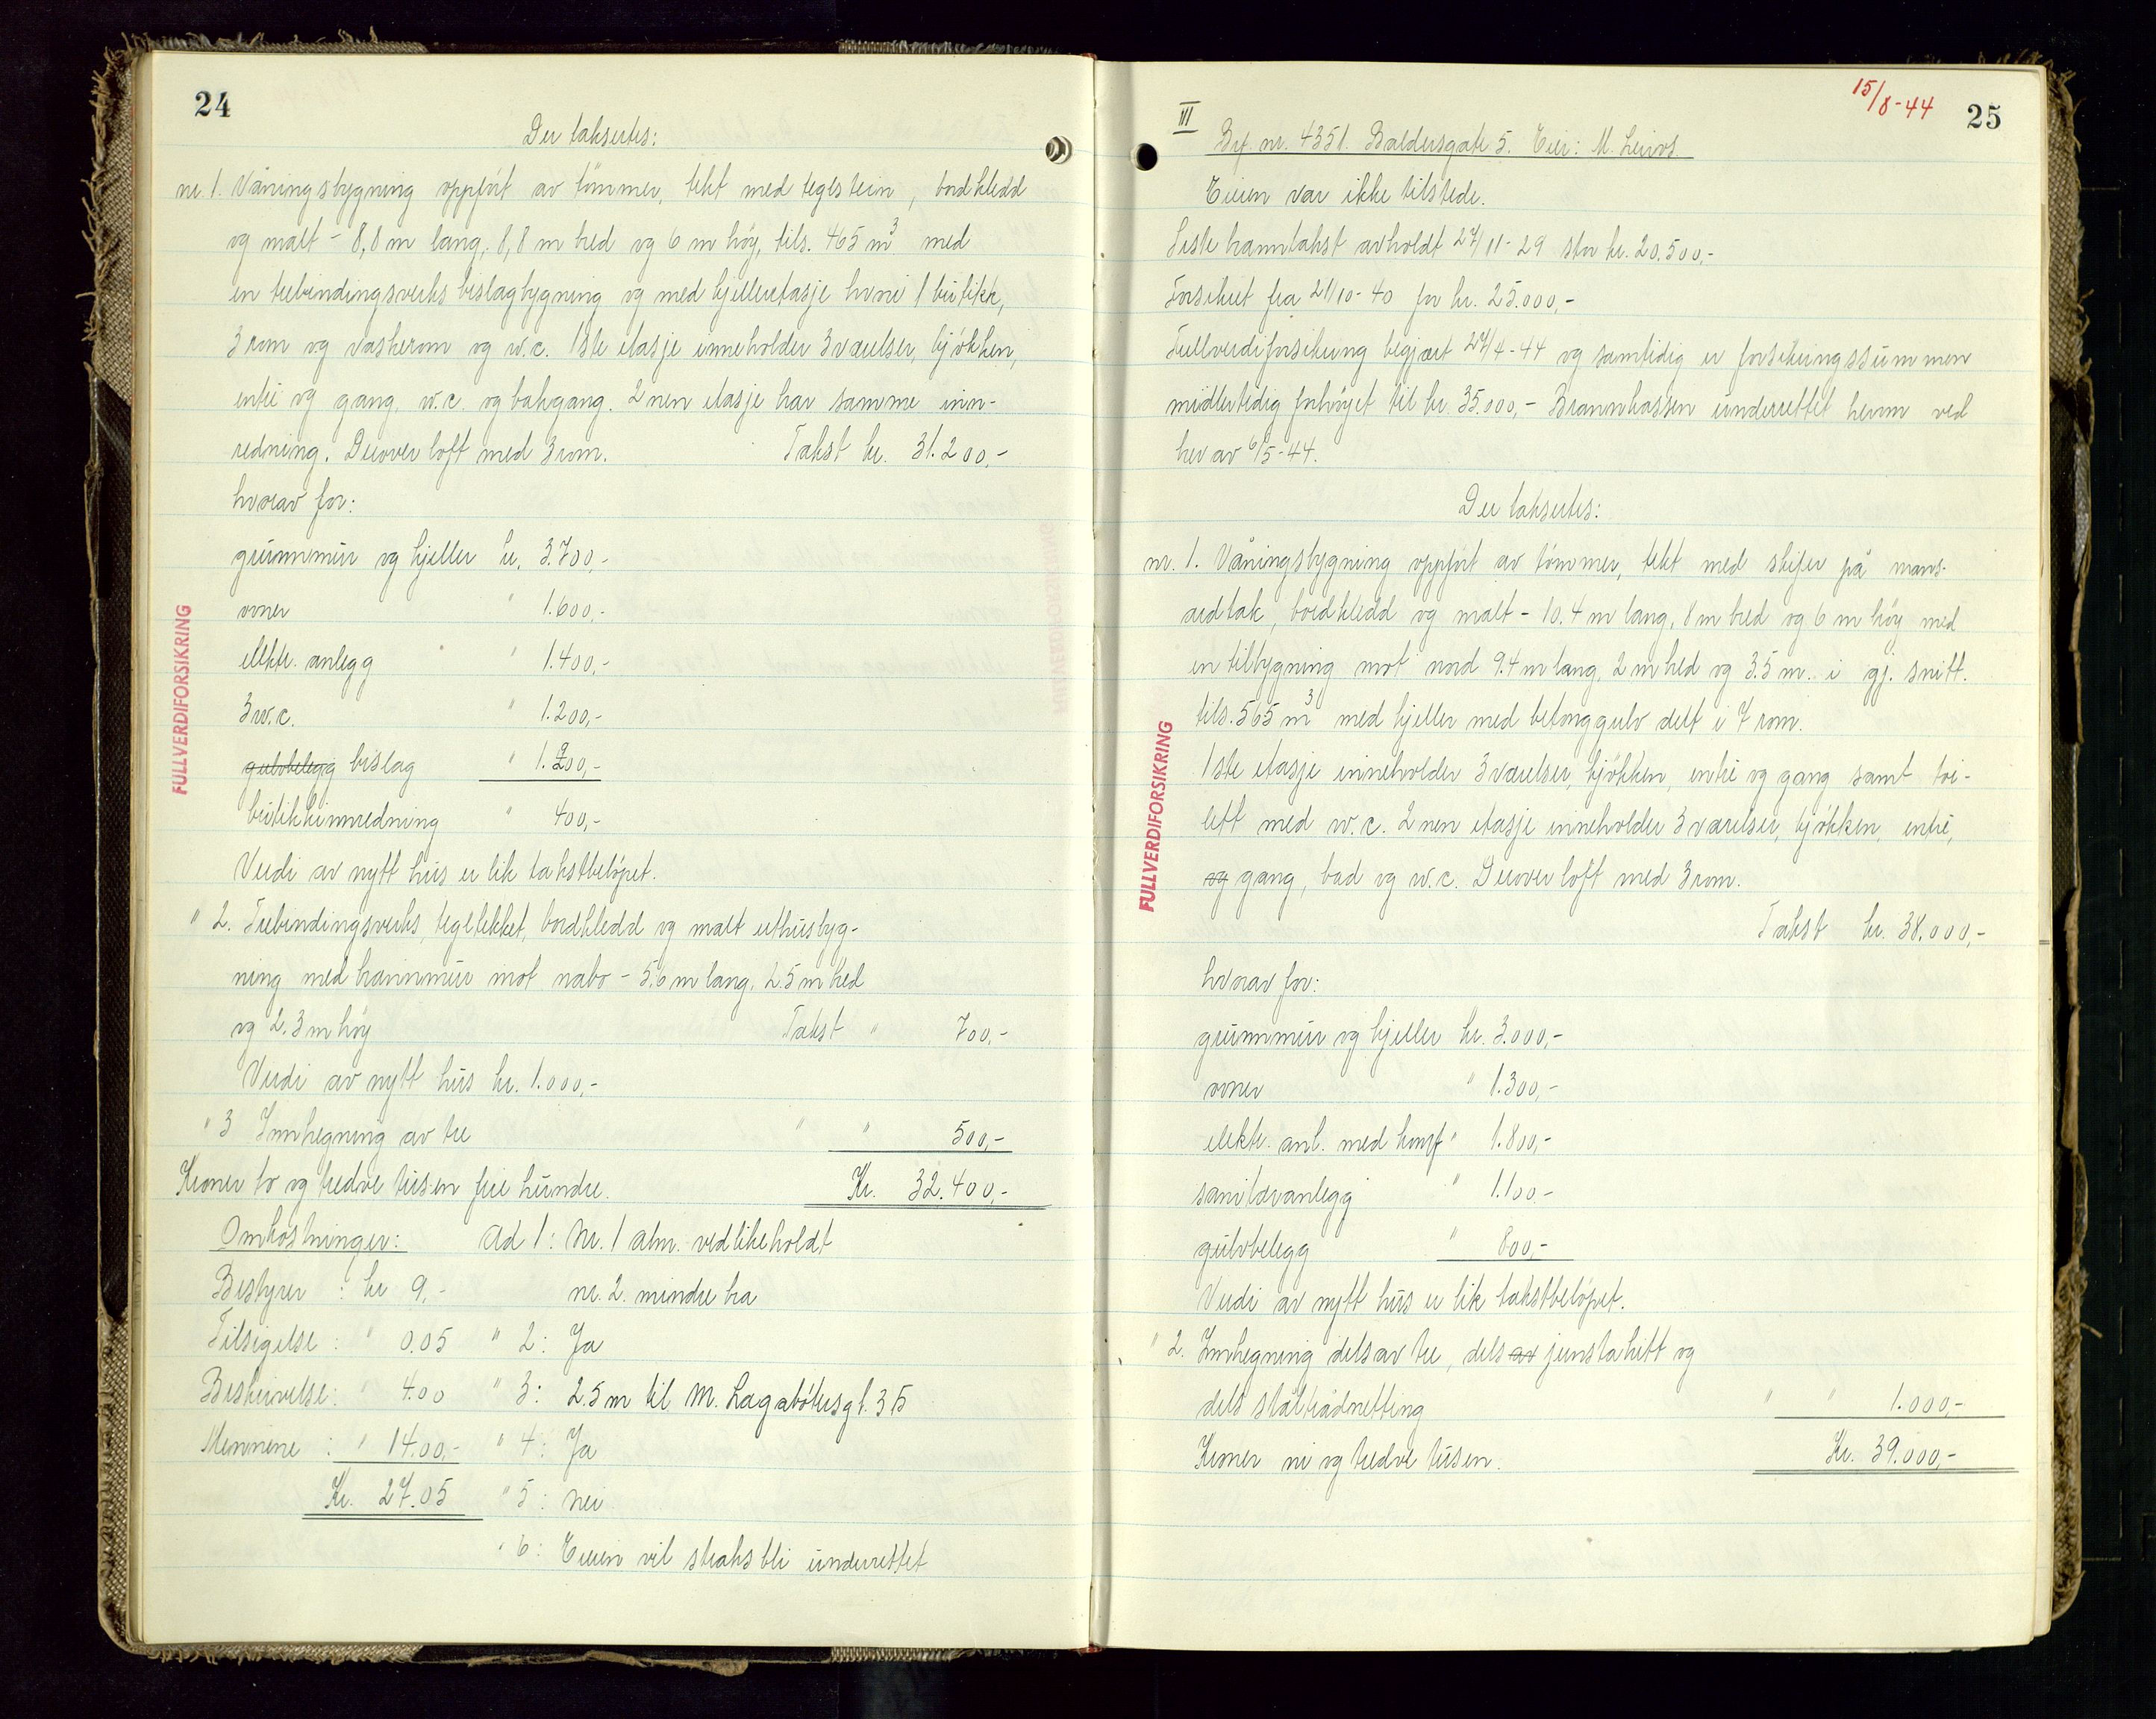 24
Der takseres:
nr. 1. Våningsbygning oppført av tømmer, tekt med teglstein, bordkledd
og malt - 8,8 m lang, 8,8 m bred og 6 m høy, tils. 465 m³ med
en trebindingsverks bislagbygning og med kjelleretasje hvori 1 butikk,
3 rom og vaskerom og w.c. 1ste etasje inneholder 3 værelser, kjøkken,
entré og gang, w.c. og bakgang. 2nen etasje har samme inn-
redning. Derover loft med 3 rom. Takst kr. 31.200,-
hvorav for:
grunnmur og kjeller kr. 3.700,-
ovner " 1.600,-
elektr. anlegg " 1.400,-
3 w.c. " 1.200,-
gulvbelegg bislag " 1.200,-
butikkinnredning " 400,-
Verdi av nytt hus er lik takstbeløpet.
" 2. Trebindingsverks, tegltekket, bordkledd og malt uthusbyg-
ning med brannmur mot nabo - 5.6 m lang, 2.5 m bred
og 2.3 m høy Takst " 700,-
Verdi av nytt hus kr. 1.000,-
" 3 Innhegning av tre " " 500,-
Kroner to og tredve tusen fire hundre. Kr. 32.400,-
Omkostninger: Ad 1: Nr. 1 alm. vedlikeholdt
Bestyrer : kr 9,- nr. 2. mindre bra
Tilsigelse : " 0.05 " 2: Ja
Beskrivelse: " 4.00 " 3: 2.5 m til M. Lagabøtersgt. 35
Mennene : " 14.00,- " 4: Ja
Kr. 27.05 " 5: nei
" 6: Eieren vil straks bli underrettet
FULLVERDIFORSIKRING
15/8-44
25
VI
Brf. nr. 4351. Baldersgate 5. Eier: M. Leirvs
Eieren var ikke tilstede.
Siste branntakst avholdt 27/11-29 stor kr. 20.500,-
Forsikret fra 21/10-40 for kr. 25.000,-
Fullverdiforsikring begjært 27/4-44 og samtidig er forsikringssummen
midlertidig forhøyet til kr. 35.000,- Brannkassen underrettet herom ved
brev av 6/5-44.
Der takseres:
nr. 1. Våningsbygning oppført av tømmer, tekt med skifer på mans-
ardtak, bordkledd og malt - 10.4 m lang, 8 m bred og 6 m høy med
en tilbygning mot nord 9.4 m lang, 2 m bred og 3.5 m. i gj. snitt.
tils. 565 m³ med kjeller med betonggulv delt i 7 rom.
1ste etasje inneholder 3 værelser, kjøkken, entré og gang samt toi-
lett med w.c. 2nen etasje inneholder 3 værelser, kjøkken, entré,
og gang, bad og w.c. Derover loft med 3 rom.
Takst kr. 38.000,-
hvorav for:
grunnmur og kjeller kr. 3.000,-
ovner " 1.300,-
elektr. anl. med komf " 1.800,-
sanitæranlegg " 1.100.-
gulvbelegg " 800,-
Verdi av nytt hus er lik takstbeløpet.
" 2. Innhegning dels av tre, dels av jernstakitt og
dels ståltrådnetting " " 1.000,-
Kroner ni og tredve tusen. Kr. 39.000,-
FULLVERDIFORSIKRING